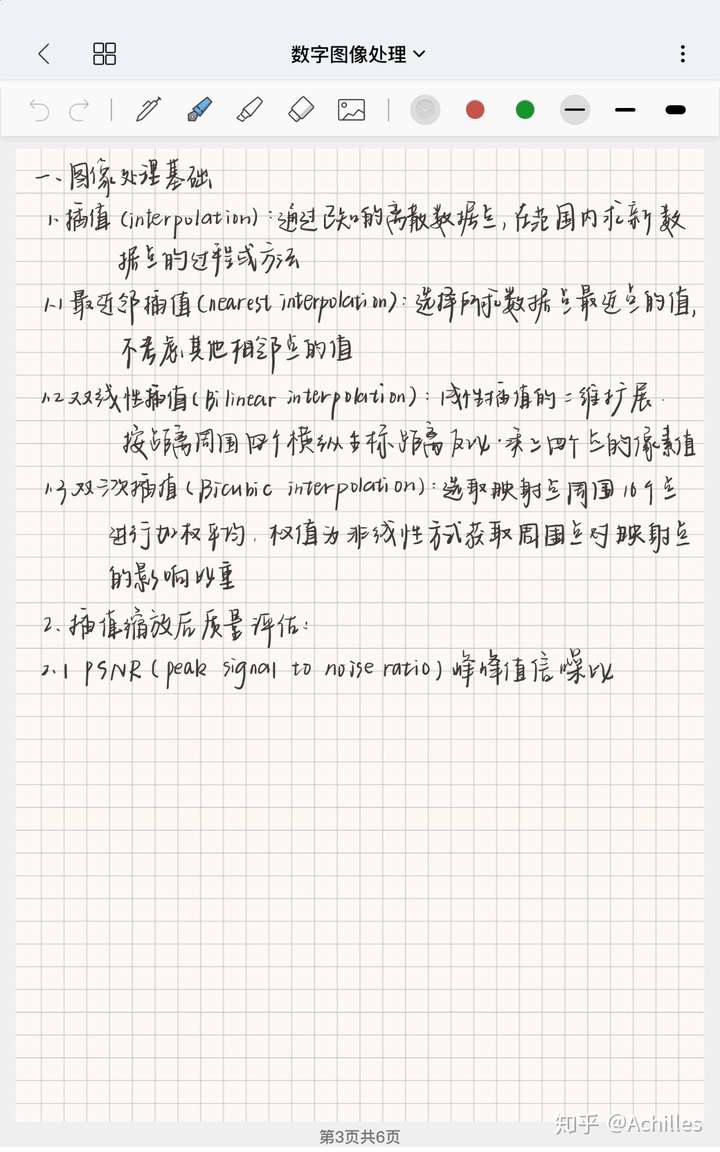 数字图像处理
一、图像处理基础
1. 插值 (interpolation)：通过已知的离散数据点, 在范围内求新数
据点的过程或方法
1.1 最近邻插值 (nearest interpolation)：选择所求数据点最近点的值,
不考虑其他相邻点的值
1.2 双线性插值 (Bilinear interpolation)：线性插值的二维扩展.
按距离周围四个横纵坐标距离反比·乘上四个点的像素值
1.3 双三次插值 (Bicubic interpolation)：选取映射点周围16个点
进行加权平均. 权值为非线性方式获取周围点对映射点
的影响比重
2. 插值缩放后质量评估：
2.1 PSNR (peak signal to noise ratio) 峰峰值信噪比
知乎 @Achilles
第3页共6页